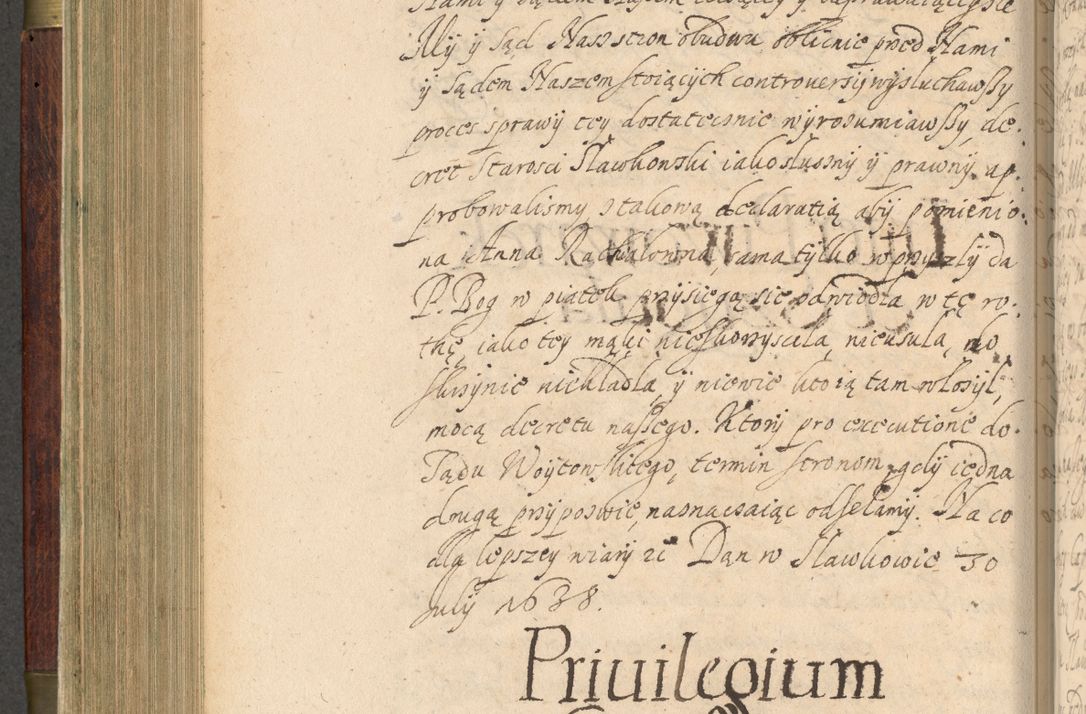 Nami y Sądem Naszem
My ÿ Sąd Nasz stron obudwu oblicnie przed Nami
ÿ Sądem Naszem stoiącÿch controuersij wÿsłuchawszÿ
proces sprawÿ teÿ dostatecznie wÿrozumiawszÿ, de-
cret Starosci Sławkowski iako słusznÿ ÿ prawnÿ ap-
probowalismÿ z takową declaratią abÿ pomienio-
na Anna Rąchalowna, sama tÿlko w przÿszłÿ da
P. Bog w piątek przÿsięgą się odwiodła w tę ro-
thę, iako teÿ mąki nie skorzÿsciła, nieusuła, do
skrzÿnie niekładła, ÿ niewie kto ią tam włożÿł,
mocą decretu naszego. Ktorÿ pro executione do
Sądu Woÿtowskiego, termin stronom gdÿ iedna
drugą przÿpozwie, naznaczaiąc odsełamÿ. Na co
dlą lepszeÿ wiarÿ &c Dąn w Sławkowie 30
Julÿ 1638.
Priuilegium